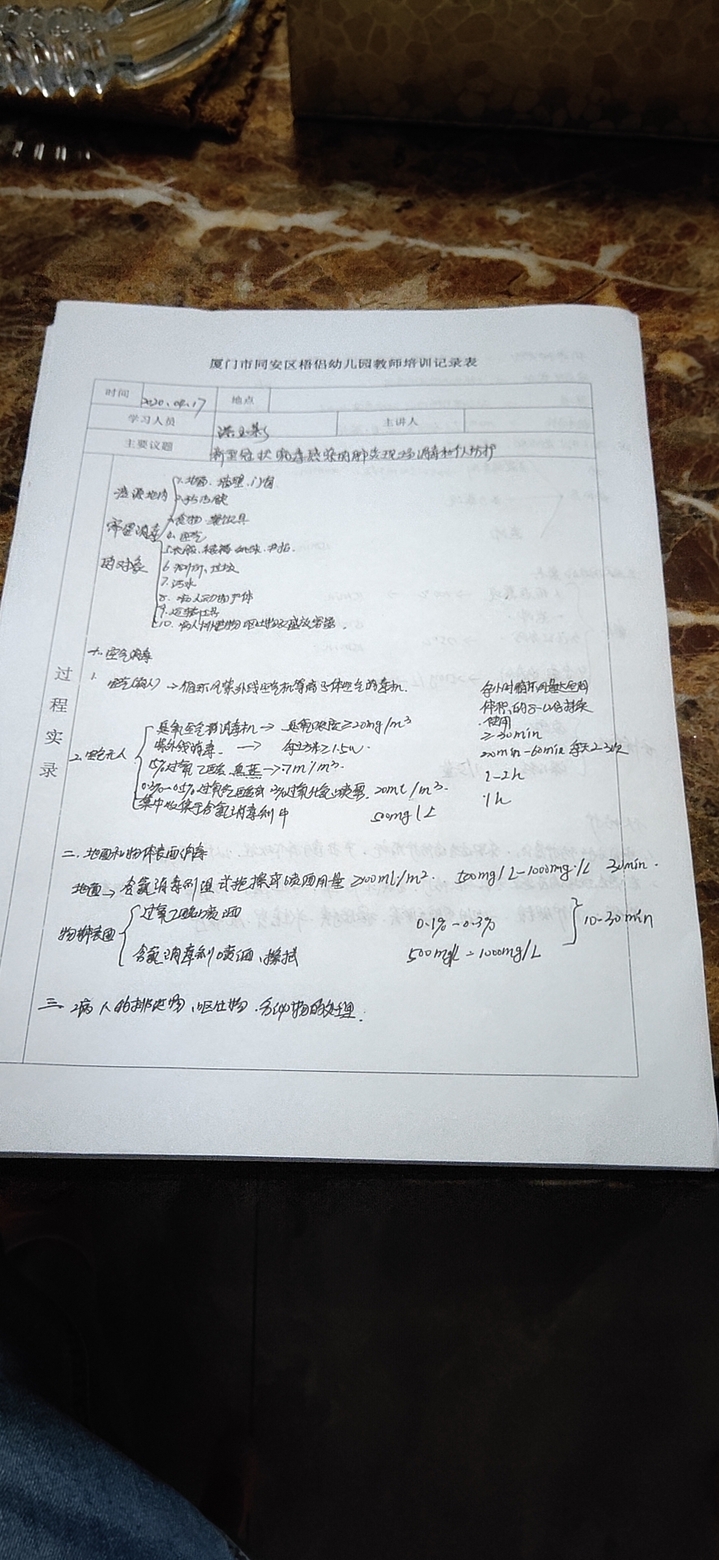 厦门市同安区梧侣幼儿园教师培训记录表
时间 2020.04.17 地点
学习人员 主讲人
主要议题 新型冠状病毒感染的肺炎现场消毒和个人防护
过程实录
疫源地内
需要消毒
的对象
1.地面、墙壁、门窗
3.食物 餐饮具
4.空气
5.衣服、被褥
6.厕所、垃圾
7.污水
8.病人
9.运输工具
10.病人排泄物 呕吐物及盛放容器.
一.空气消毒
1. 空气(有人)→循环风紫外线空气机等 消毒机. 每小时循环风量大空间
体积的8-10倍
使用
2.空气无人
臭氧空气 消毒机→ 臭氧浓度≥20mg/m³ ≥30min
紫外线消毒. → 每立方米≥1.5w. 30min-60min 每天2-3次
15%过氧乙酸 熏蒸→7ml/m³. 1-2h
0.3%-0.5%过氧乙酸或3%过氧化氢 喷雾. 20ml/m³. 1h
集中收集于含氯消毒剂中 500mg/L
二.地面和物体表面消毒
地面→含氯消毒剂湿式拖擦或喷洒用量≥200mL/m². 500mg/L-1000mg/L 30min.
物体表面
过氧乙酸喷洒 0.1%-0.3%
含氯消毒剂喷洒、擦拭 500mg/L-1000mg/L
10-30min
三.病人的排泄物、呕吐物.分泌物的处理.